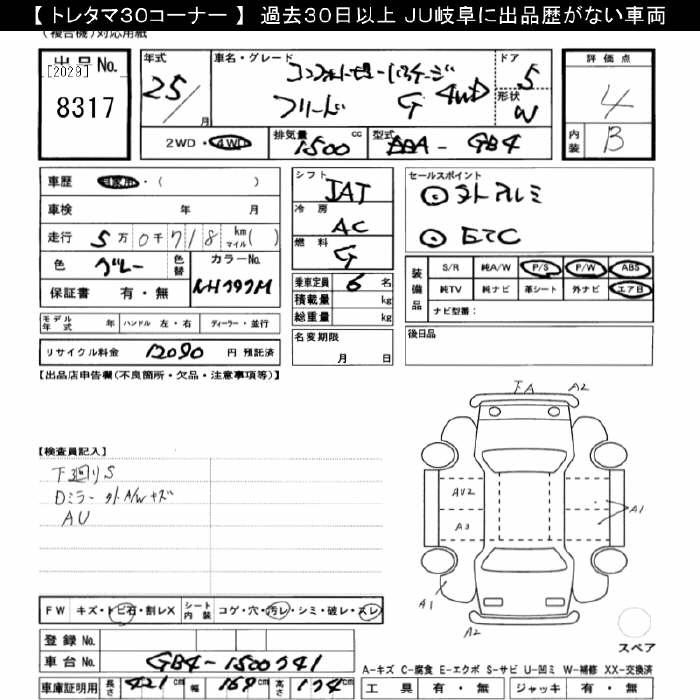 【 トレタマ30コーナー 】 過去30日以上 JU岐阜に出品歴がない車両
(複合機)対応用紙
出品No.
[2029]
8317
年式
25/
月
車名・グレード
コンフォートビューパッケージ
フリード G 4WD
ドア
5
形状
W
評価点
4
内装
B
2WD・4WD
排気量
1500 cc
型式
DBA - GB4
車歴 自家用・( )
車検 年 月
走行 5万0千718 km マイル( )
色 グレー 色替
カラーNo.
NH797M
保証書 有・無
シフト
IAT
冷房
AC
燃料
G
乗車定員 6 名
積載量 kg
総重量 kg
セールスポイント
◉ 外アルミ
◉ ETC
装備品
S/R 純A/W P/S P/W ABS
純TV 純ナビ 革シート 外ナビ エアB
ナビ型番:
モデル年式 年 ハンドル 左・右 ディーラー・並行
名変期限
月 日
後日品
リサイクル料金 12090 円 預託済
【出品店申告欄(不良箇所・欠品・注意事項等)】
【検査員記入】
下回りS
Dミラー 外A/Wキズ
AU
下A A2
AU2
A3
A1
A1
A2
スペア
FW キズ・トビ石・割レX
シート内装 コゲ・穴・汚レ・シミ・破レ・スレ
登録 No.
車台 No. GB4-1500741
車庫証明用 長さ 421 cm 幅 169 cm 高さ 174 cm
A-キズ C-腐食 E-エクボ S-サビ U-凹ミ W-補修 XX-交換済
工具 有・無 ジャッキ 有・無